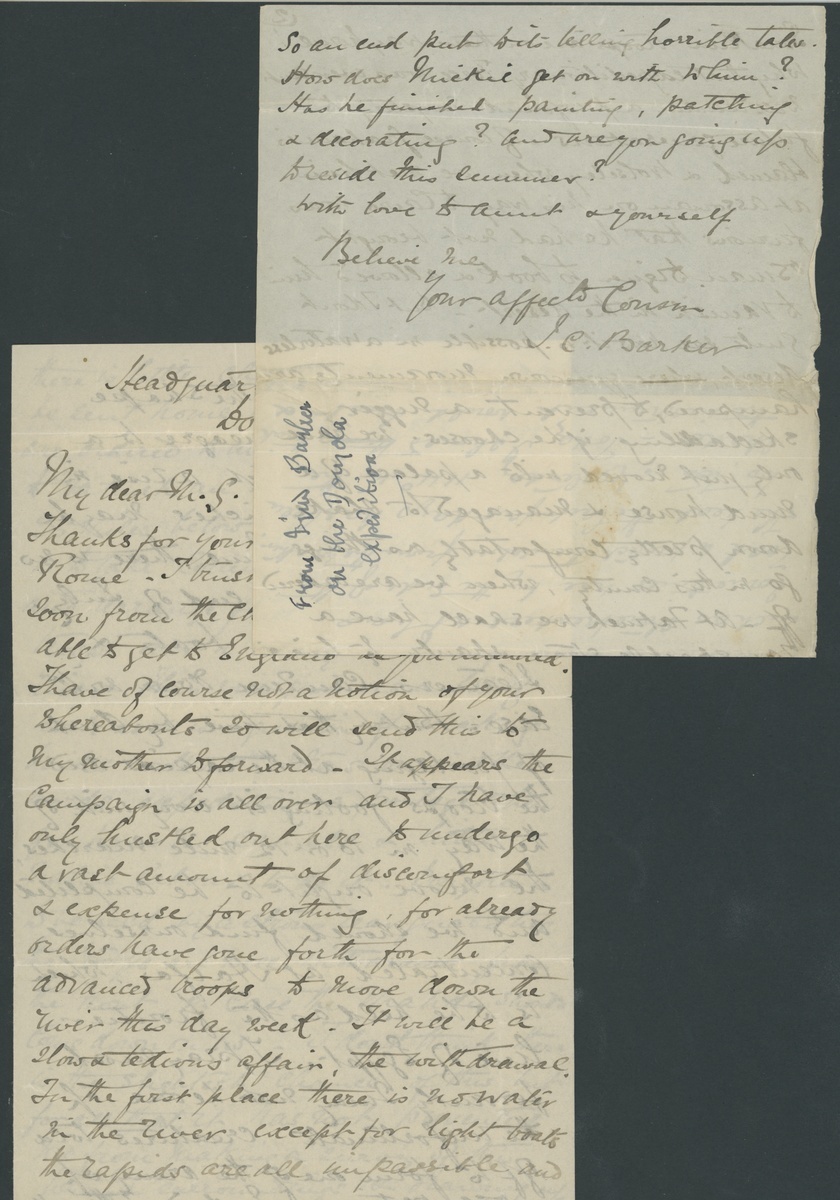 So an end put to its telling horrible tales.
How does Mickie get on with Whim?
Has he finished painting, patching
& decorating? And are you going up
to reside this summer?
With love to Aunt & yourself
Believe me
Your affecte Cousin
J. C. Barker
From Barker
on the Dongola
expedition
Headquar
Do
My dear M. G.
Thanks for your
Rome - I trus
soon from the Ch
able to get to as you
I have of course not a notion of your
whereabouts so will send this to
my mother to forward - It appears the
Campaign is all over and I have
only hustled out here to undergo
a vast amount of discomfort
& expense for nothing, for already
orders have gone forth for the
advanced troops to move down the
river this day week. It will be a
slow & tedious affair, the withdrawal.
In the first place there is no water
in the river except for light boats
the rapids are all impassible and